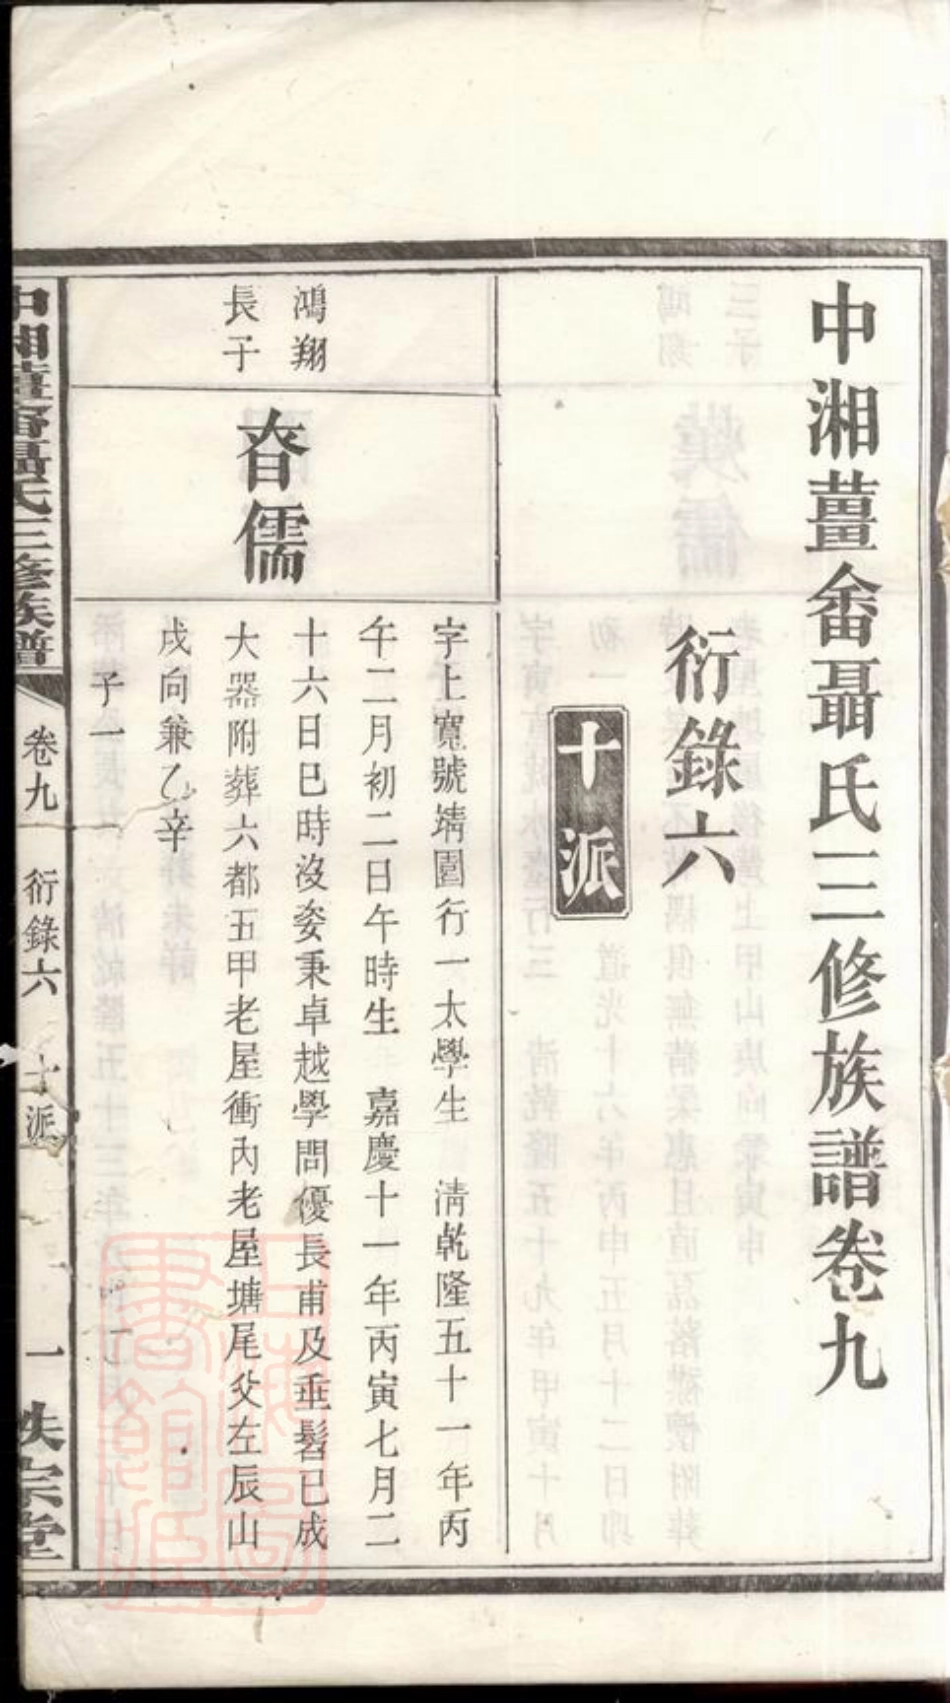 中湘薑畬聶氏三修族譜卷九
衍錄六
十派
鴻翔
長子
昚儒
字上寬號靖園行一太學生 清乾隆五十一年丙
午二月初二日午時生 嘉慶十一年丙寅七月二
十六日巳時沒姿秉卓越學問優長甫及垂髫已成
大器附葬六都五甲老屋衝內老屋塘尾父左辰山
戌向兼乙辛
子一
中湘薑畬聶氏三修族譜 卷九 衍錄六 十派 一 秩宗堂